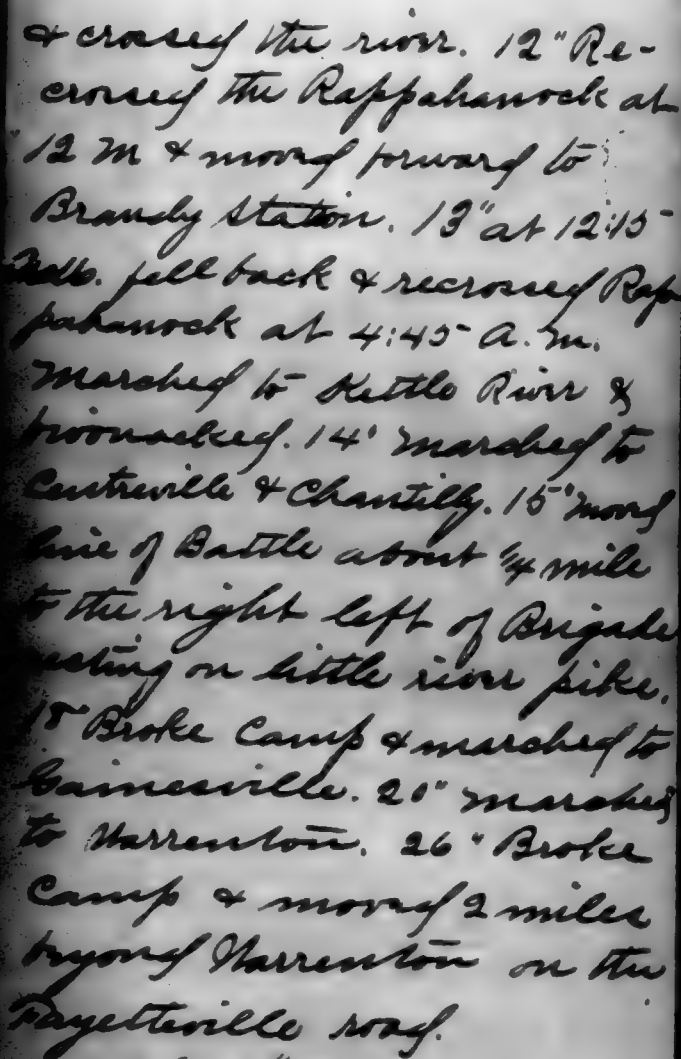 & crossed the river. 12" Re-
crossed the Rappahanock at
12 M & moved forward to
Brandy Station. 13" at 12:15
fell back & recrossed Rap
pahanock at 4:45 A.M.
Marched to Kettle River &
bivouacked. 14' marched to
Centreville & Chantilly. 15" moved
line of Battle about 1/4 mile
to the right left of Brigade
resting on little river pike.
Broke Camp & marched to
Gainesville. 20" marched
to Warrenton. 26" Broke
Camp & moved 2 miles
beyond Warrenton on the
Fayetteville road.